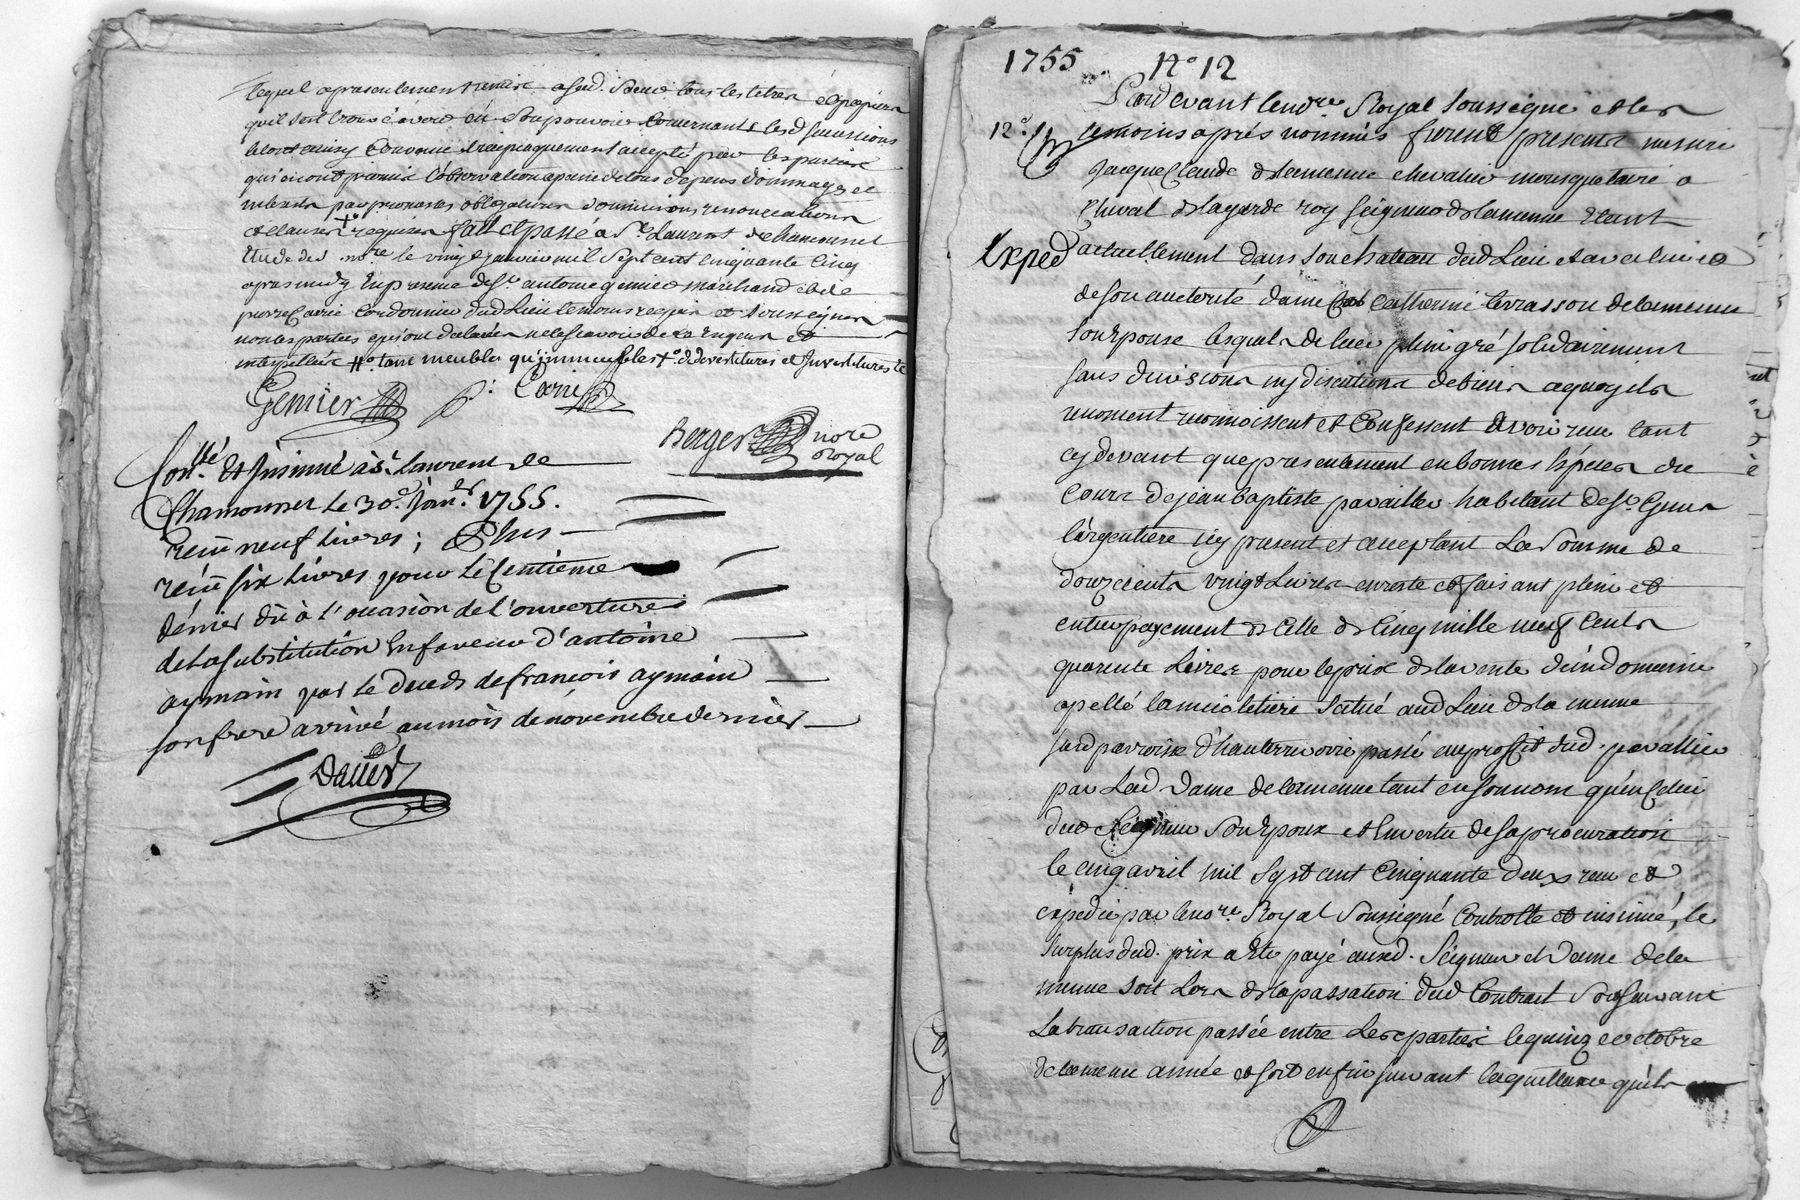 lequel a presentement remis aud. Sieur tous les titres et papiers
qu'il soit trouvé avoir en son pouvoir concernant lesd successions
reciproquement accepté par les parties
qui ont promis l'observation a peine de tous depens dommages et
interets par promesses obligations soumissions renonciations
et clauses +° requises fait et passé a St Laurent de Chamousset
Etude dud. nore le vingt janvier mil Sept cent cinquante cinq
apres midy En presence de Sr antoine genier marchand et de
pierre Carie Cordonnier dud Lieu temoins requis et soussignes
non les parties qui ont declarés ne le scavoir de ce Enquis et
interpellées #° tant meubles qu'immeubles +° de devestitures et Investitures
Genier p: Carie
Berger nore
Royal
Conllé Et Insinué à St Laurent de
Chamousset Le 30e Janer 1755.
reçu neuf Livres; Plus
reçu six Livres pour Le Centième
dénier dû à l'occasion de l'ouverture
de La substitution En faveur d'antoine
aymain par le decéds de françois aymain
son frere arrivé au mois de novembre dernier
1755 No 12
Pardevant le nore Royal soussigné et les
12e temoins aprés nommés furent presents messire
Jacque Claude de lamenue chevalier mousquetaire a
Cheval de la garde roy seigneur de lamenue Etant
Exped actuellement dans son chateau dud Lieu et
de son autorité dame Catherine terrasson de lamenue
son Epouse lesquels de leur plein gré solidairement
sans divisions ny discutions de biens a quoy ils
renoncent reconnoissent et Confessent avoir reçu tant
cy devant que presentement en bonnes Espéces du
Cours de jean baptiste pavailler habitant de St Genis
l'argentiere icy present et acceptant La Somme de
douze cents vingt Livres en reste et faisant plein et
entier payement de Celle de Cinq mille neuf Cents
quarente Livres pour le prix de la vente d'un domaine
apellé la situé aud Lieu de la menue
susd parroisse d'hauterivoire passé au proffit dud. pavallier
par Lad Dame de lamenue tant en son nom qu'en Celui
dud Seigneur Son Epoux et En vertu de sa procuration
le cinq avril mil Sept cent Cinquante deux reçu et
expedié par le nore Royal Soussigné Controllé et insinué, le
surplus dud. prix a Eté payé auxd. Seigneur et Dame de la
menue soit Lors de la passation dud Contrait soit suivant
La transaction passée entre Les parties le quinze octobre
de la meme année et soit enfin suivant la quittance qu'ils